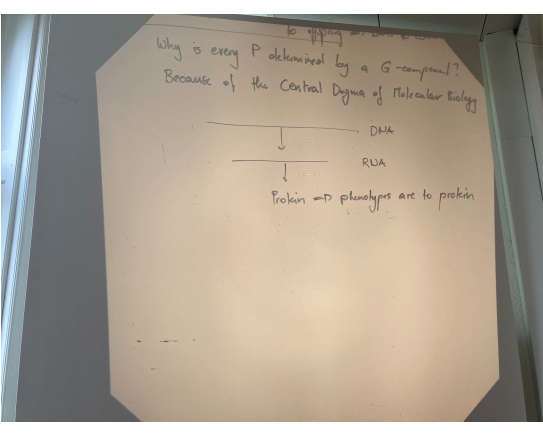 to
Why is every P determined by a G-component?
Because of the Central Dogma of Molecular Biology
DNA
RNA
Protein => phenotypes are to protein